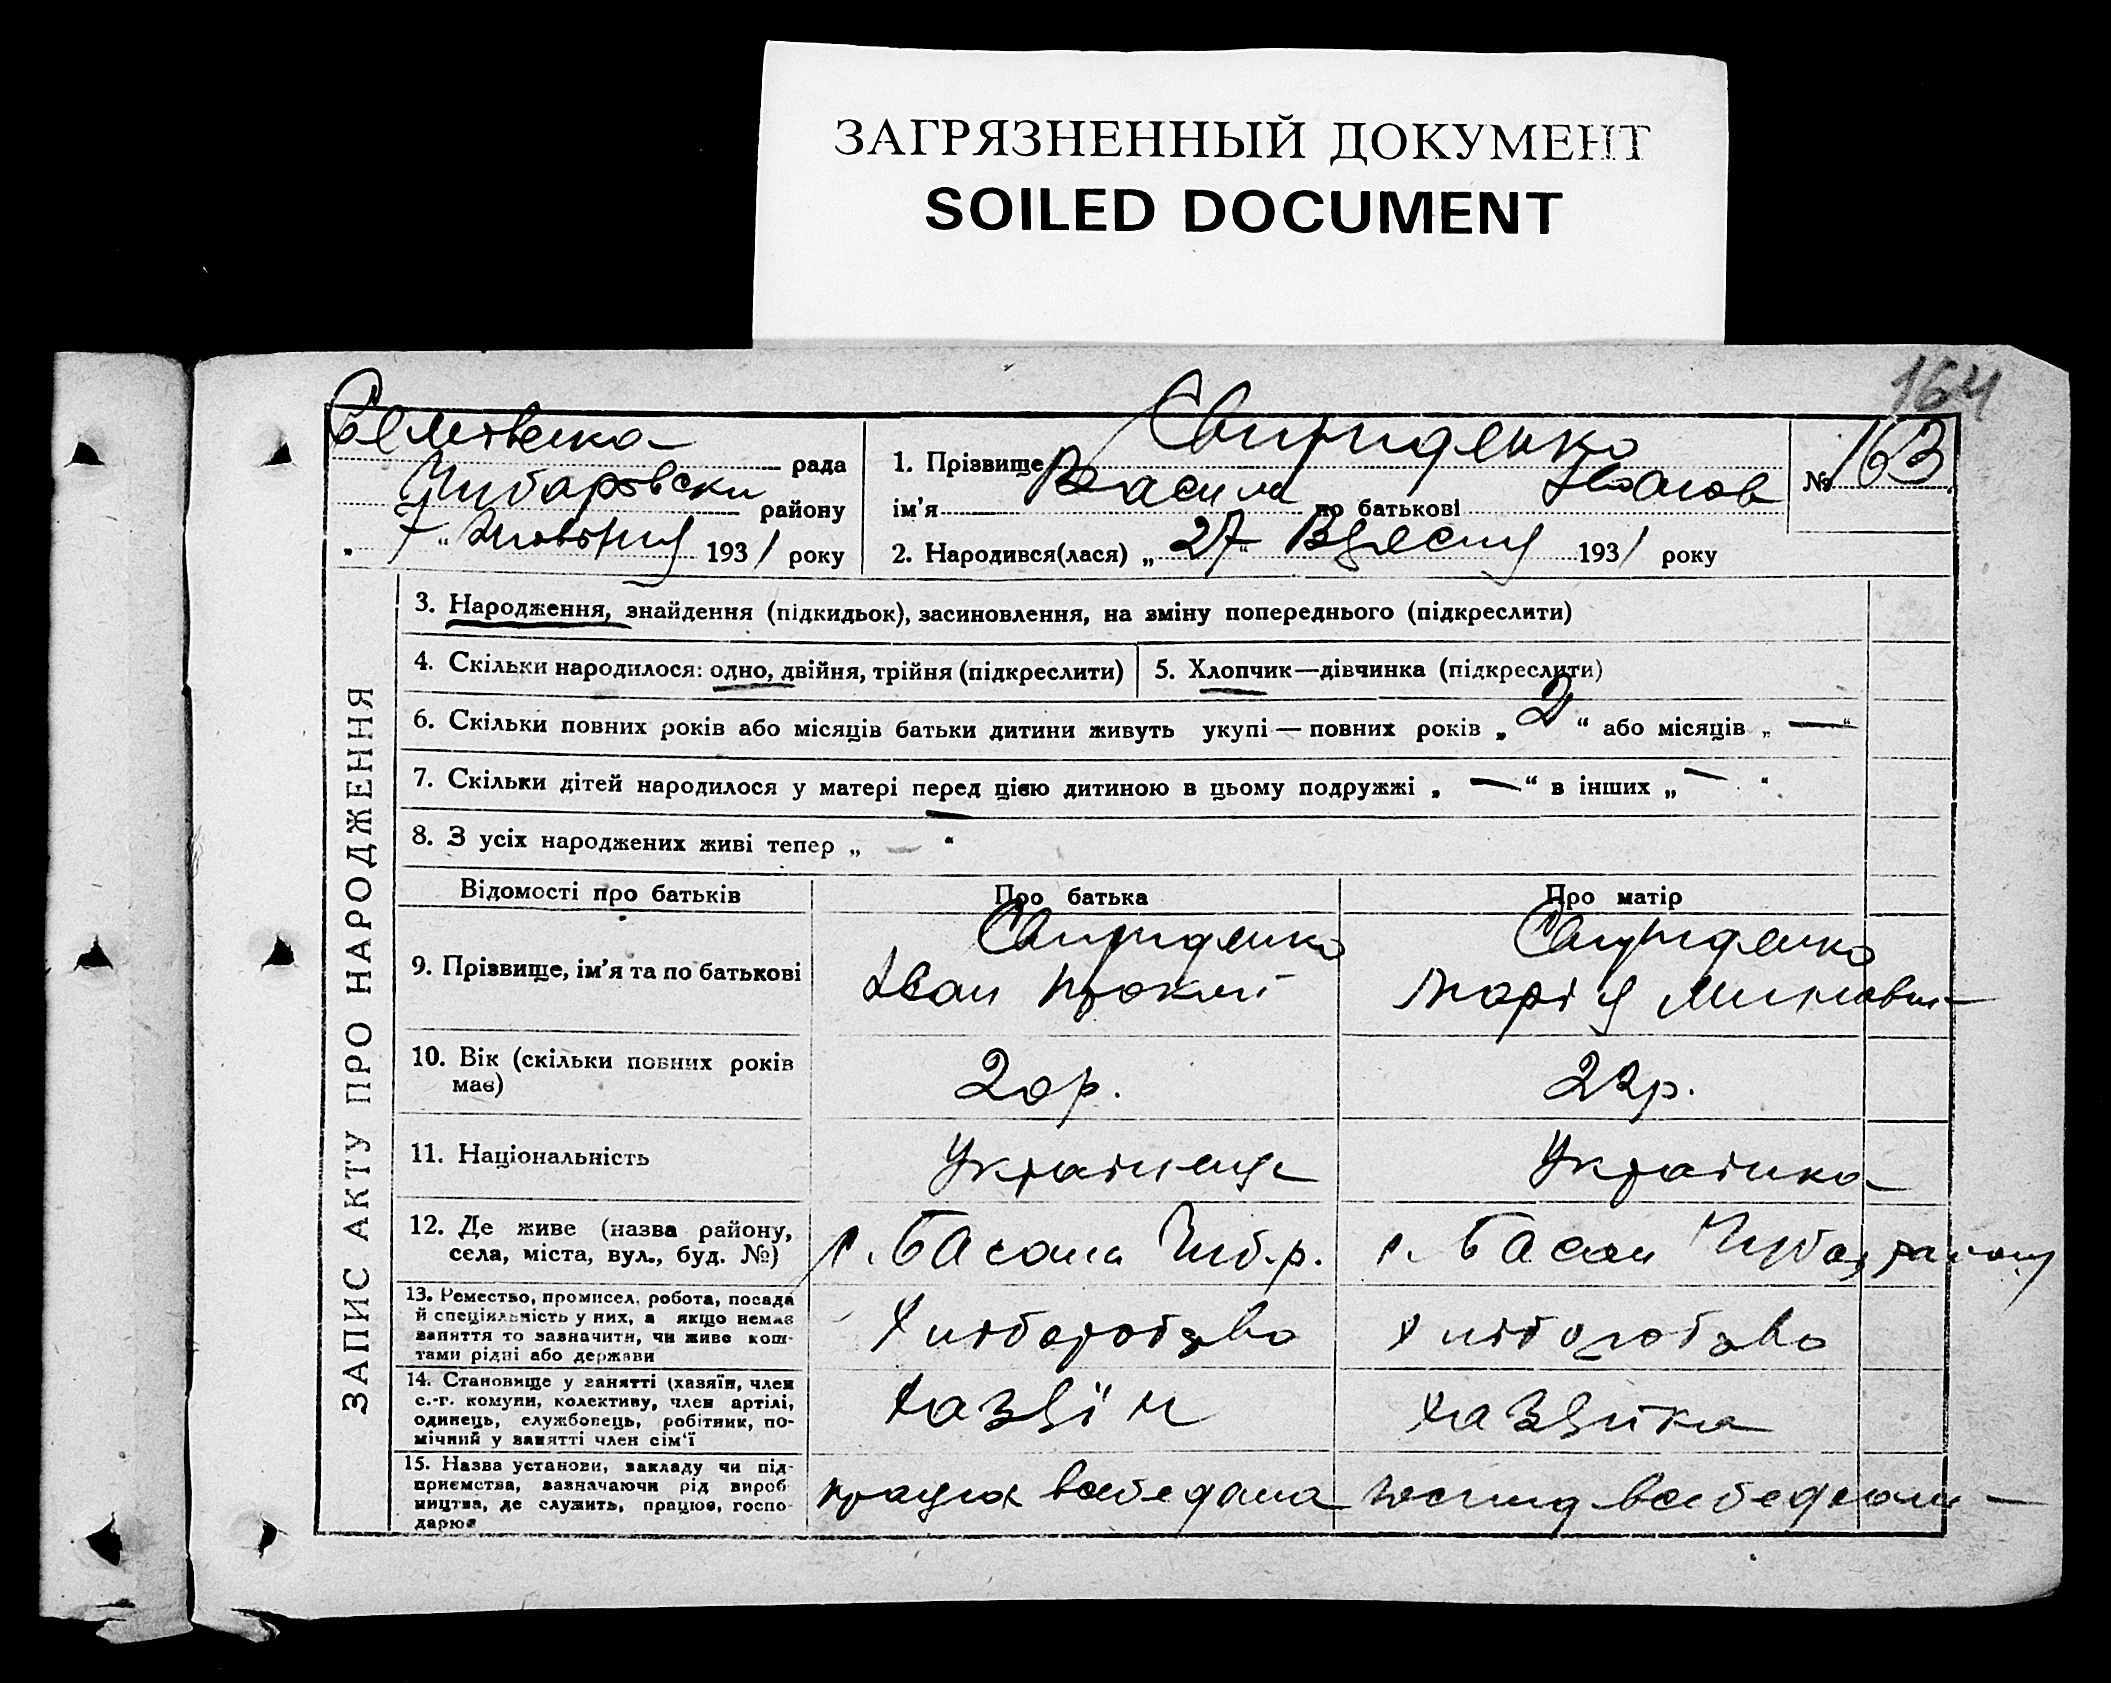 ЗАГРЯЗНЕННЫЙ ДОКУМЕНТ
SOILED DOCUMENT
164
рада
Чубаровски району
„ 7 “ Жовтня 1931 року
1. Прізвище Свириденко
ім'я Василь по батькові Іванов
2. Народився(лася) „ 27 “ Вересня 1931 року
№ 163
ЗАПИС АКТУ ПРО НАРОДЖЕННЯ
3. Народження, знайдення (підкидьок), засиновлення, на зміну попереднього (підкреслити)
4. Скільки народилося: одно, двійня, трійня (підкреслити)
5. Хлопчик—дівчинка (підкреслити)
6. Скільки повних років або місяців батьки дитини живуть укупі — повних років „ 2 “ або місяців „ — “
7. Скільки дітей народилося у матері перед цією дитиною в цьому подружжі „ — “ в інших „ — “
8. З усіх народжених живі тепер „ — “
Відомості про батьків
Про батька
Про матір
9. Прізвище, ім'я та по батькові
Свириденко
Іван
Свириденко
Марія
10. Вік (скільки повних років має)
20 р.
22 р.
11. Національність
Українець
Українка
12. Де живе (назва району,
села, міста, вул., буд. №)
с. Басань Чуб. р.
с. Басань
13. Ремество, промисел, робота, посада
й спеціяльність у них, а якщо немає
заняття то зазначити, чи живе кош-
тами рідні або держави
Хліборобство
Хліборобство
14. Становище у занятті (хазяїн, член
с.-г. комуни, колективу, член артілі,
одинець, службовець, робітник, по-
мічний у занятті член сім'ї
хазяїн
хазяйка
15. Назва установи, закладу чи під-
приємства, зазначаючи рід вироб-
ництва, де служить, працює, госпо-
дарює